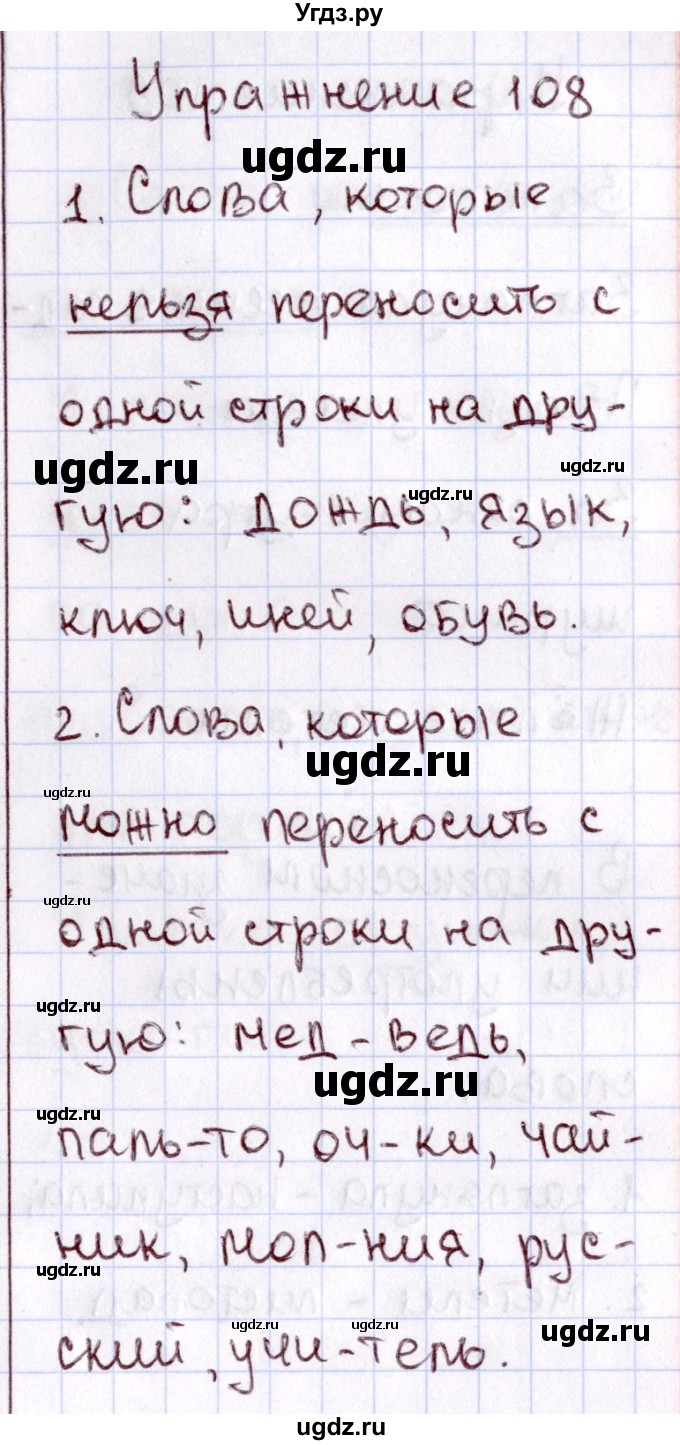 Угдз.ру
Упражнение 108
ugdz.ru
1. Слова, которые
нельзя переносить с
одной строки на дру-
ugdz.ru
ugdz.ru
ugdz.ru
гую: дождь, язык,
ключ, иней, обувь.
2. Слова, которые
ugdz.ru
ugdz.ru
можно переносить с
ugdz.ru
одной строки на дру-
ugdz.ru
гую: мед-ведь,
ugdz.ru
ugdz.ru
паль-то, оч-ки, чай-
ugdz.ru
ник, мол-ния, рус-
ugdz.ru
ugdz.ru
ugdz.ru
ugdz.ru
ский, учи-тель.
ugdz.ru